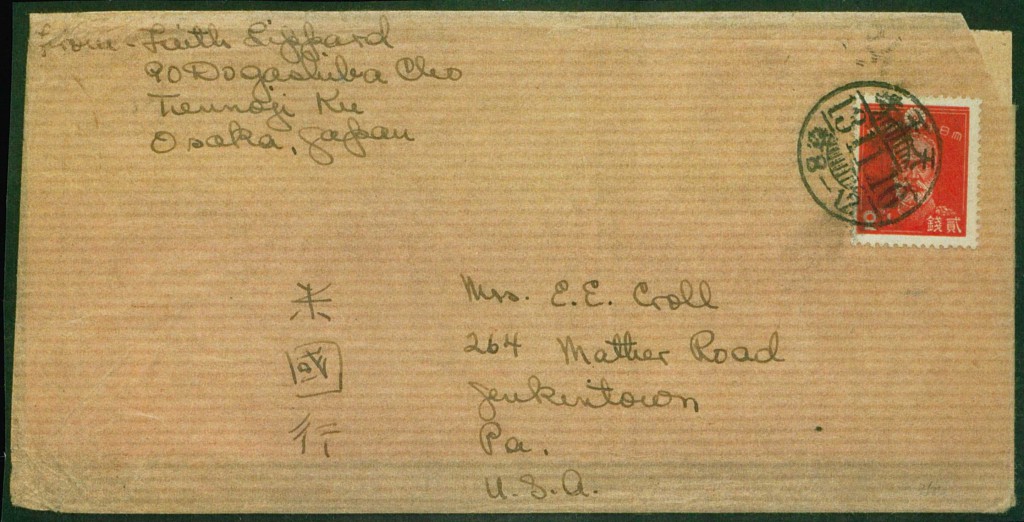 From - Faith Lippard
90 Dogashiba Cho
Tennoji Ku
Osaka, Japan
13.11.16
后8-12
貳錢
Mrs. E. E. Croll
264 Mather Road
Jenkintown
Pa.
U.S.A.
米
國
行